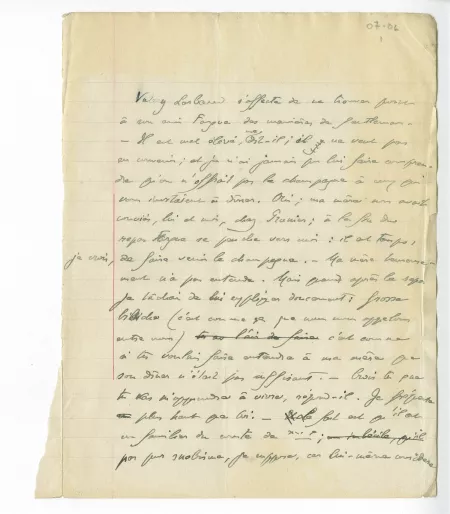 07-02
Valery Larbaud s'affecte de ne trouver
à son ami Fargue des manières de gentleman. -
- Il est mal élevé, ; il ne veut pas
en convenir ; et je n'ai jamais pu lui faire compren-
dre qu'on n'offrait pas le champagne à ceux qui
vous invitaient à dîner. Oui ; ma mère nous avait
conviés, lui et moi, chez ; à la fin du
repas Fargue se penche vers moi : il est temps,
je crois, de faire venir le champagne. - Ma mère heureuse-
ment n'a pas entendu. Mais quand après le repas
je tâchai de lui expliquer doucement : Grosse
(c'est comme ça que nous nous appelons
entre nous) tu as l'air de faire c'est comme
si tu voulais faire entendre à ma mère que
son dîner n'était pas suffisant. - Crois-tu que
tu vas m'apprendre à vivre, répond-il. Je
plus haut que toi. - Le fait est qu'il est
un familier du comte de ; qu'il
pas par snobisme, je suppose, car lui-même